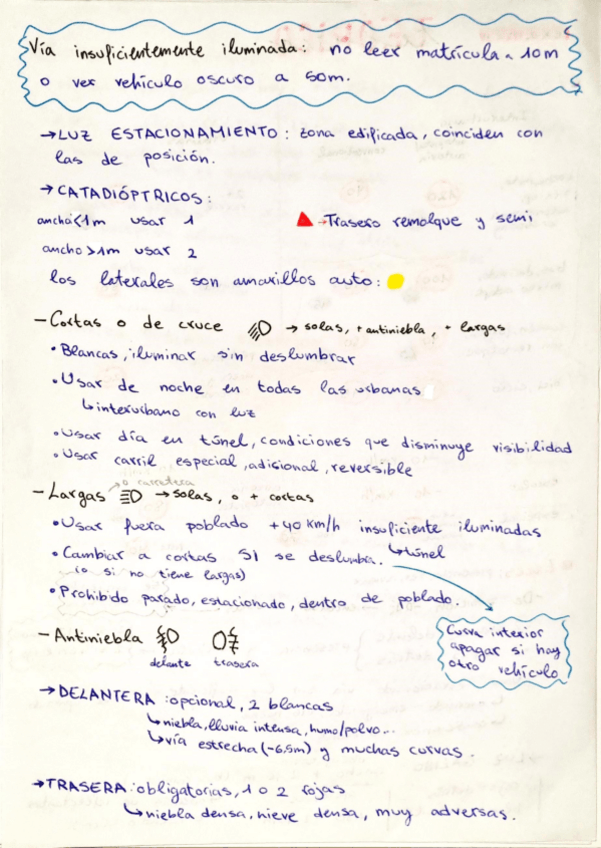 Vía insuficientemente iluminada: no leer matrícula a 10m
o ver vehículo oscuro a 50m.
→LUZ ESTACIONAMIENTO: zona edificada, coinciden con
las de posición.
→CATADIÓPTRICOS:
ancho<1m usar 1
→Trasero remolque y semi
ancho>1m usar 2
los laterales son amarillos auto:
-Cortas o de cruce → solas, +antiniebla, + largas
•Blancas, iluminar sin deslumbrar
•Usar de noche en todas las urbanas
↳interurbano con luz
•Usar día en túnel, condiciones que disminuye visibilidad
•Usar carril especial, adicional, reversible
→o carretera
-Largas →solas, o + cortas
•Usar fuera poblado +40 km/h insuficiente iluminadas
↳túnel
•Cambiar a cortas SI se deslumbra.
(o si no tiene largas)
•Prohibido parado, estacionado, dentro de poblado.
Curva interior
apagar si hay
otro vehículo
-Antiniebla
delante trasera
→DELANTERA: opcional, 2 blancas
↳niebla, lluvia intensa, humo/polvo...
↳vía estrecha (-6,5m) y muchas curvas.
→TRASERA: obligatorias, 1 o 2 rojas
↳niebla densa, nieve densa, muy adversas.